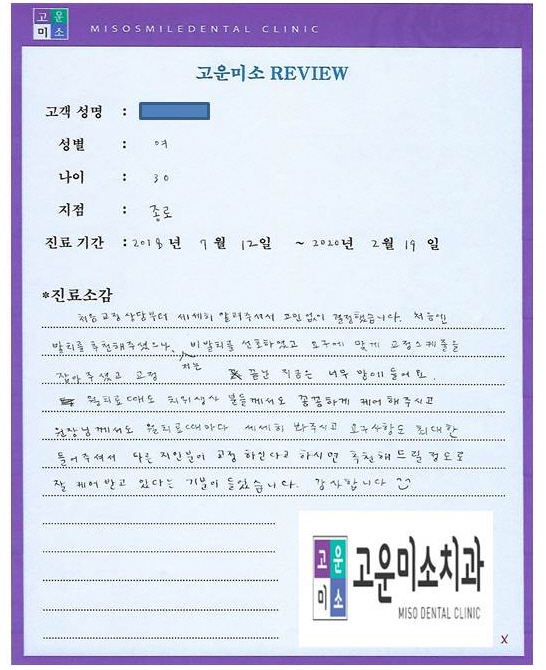 고운
미소
MISOSMILEDENTAL CLINIC
고운미소 REVIEW
고객 성명 :
성별 : 여
나이 : 30
지점 : 종로
진료기간 : 2018년 7월 12일 ~ 2020년 2월 19일
*진료소감
처음 교정 상담부터 세세히 알려주셔서 고민없이 결정했습니다. 처음엔
발치를 추천해주셨으나, 저는 비발치를 선호하였고 요구에 맞게 교정스케줄을
잡아주셨고 교정 끝난 지금은 너무 맘에 들어요.
월치료때도 치위생사 분들께서도 꼼꼼하게 케어해주시고
원장님께서도 월치료때마다 세세히 봐주시고 요구사항도 최대한
들어주셔서 다른 지인분이 교정 하신다고 하시면 추천해드릴 정도로
잘 케어받고 있다는 기분이 들었습니다. 감사합니다
고운
미소
고운미소치과
MISO DENTAL CLINIC
x